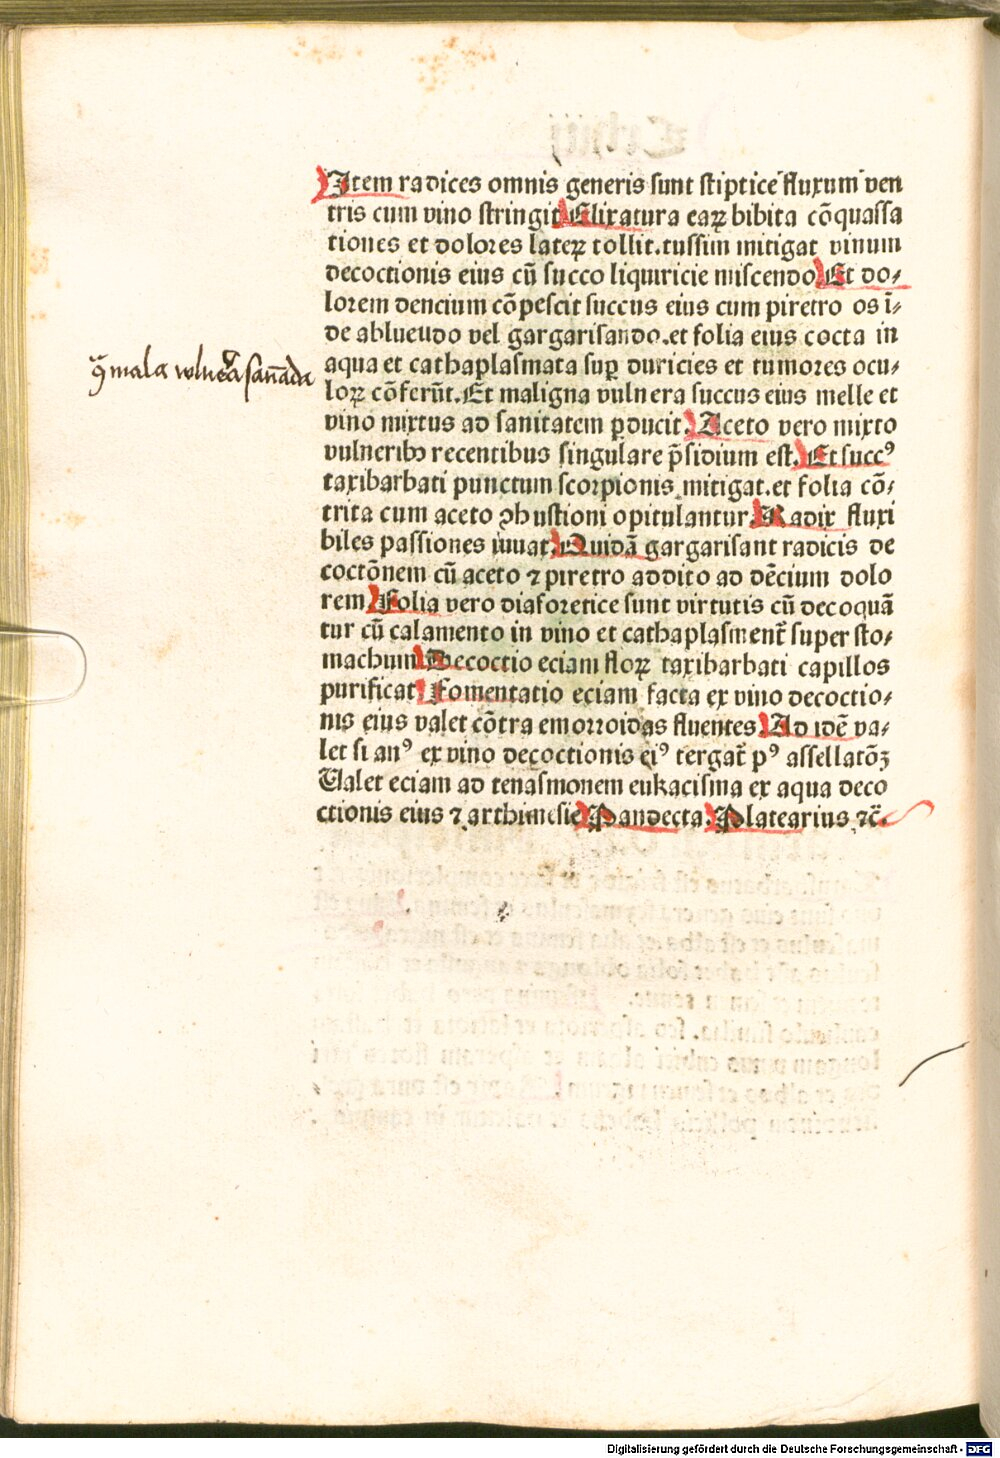 Item radices omnis generis sunt stiptice fluxum ven
tris cum vino stringit Elixatura eaꝝ bibita cõquassa
tiones et dolores lateꝝ tollit.tussim mitigat vinum
decoctionis eius cũ succo liquiricie miscendo Et do⸗
lorem dencium cõpescit succus eius cum piretro os ĩ⸗
de ablueudo vel gargarisando.et folia eius cocta in
aqua et cathaplasmata suꝑ duricies et tumores ocu⸗
loꝝ cõferũt.Et maligna vulnera succus eius melle et
vino mixtus ad sanitatem ꝑducit. Aceto vero mixto
vulneribꝫ recentibus singulare p̃sidium est. Et succꝰ
taxibarbati punctum scorpionis mitigat.et folia cõ⸗
trita cum aceto ꝯbustioni opitulantur. Radix fluxi
biles passiones iuuat. Quidã gargarisant radicis de
coctõnem cũ aceto ⁊ piretro addito ad dẽcium dolo
rem Folia vero diaforetice sunt virtutis cũ decoquã
tur cũ calamento in vino et cathaplasment̃ super sto⸗
machum Decoctio eciam floꝝ taxibarbati capillos
purificat Fomentatio eciam facta ex vino decoctio⸗
nis eius valet cõtra emorroidas fluentes. Ad idẽ va⸗
let si anꝰ ex vino decoctionis eiꝰ tergat̃ pꝰ assellatõꝫ
Valet eciam ad tenasmonem eukacisma ex aqua deco
ctionis eius ⁊ arthimesie Pandecta. Platearius ⁊c̃.
mala sanãda
Digitalisierung gefördert durch die Deutsche Forschungsgemeinschaft - DFG